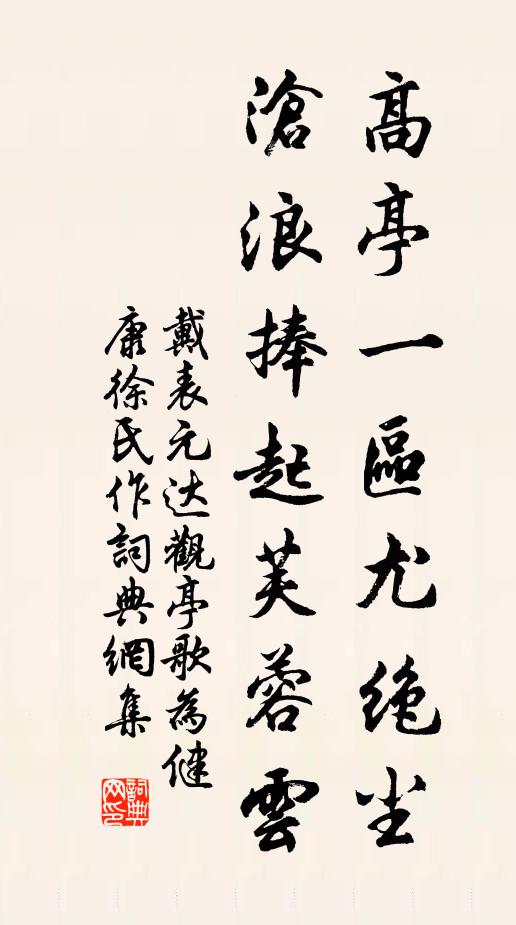 高亭一區尤绝尘
滄浪捧起芙蓉雲
戴表元达觀亭歌為健
康徐氏作詞典網集
詞典网印